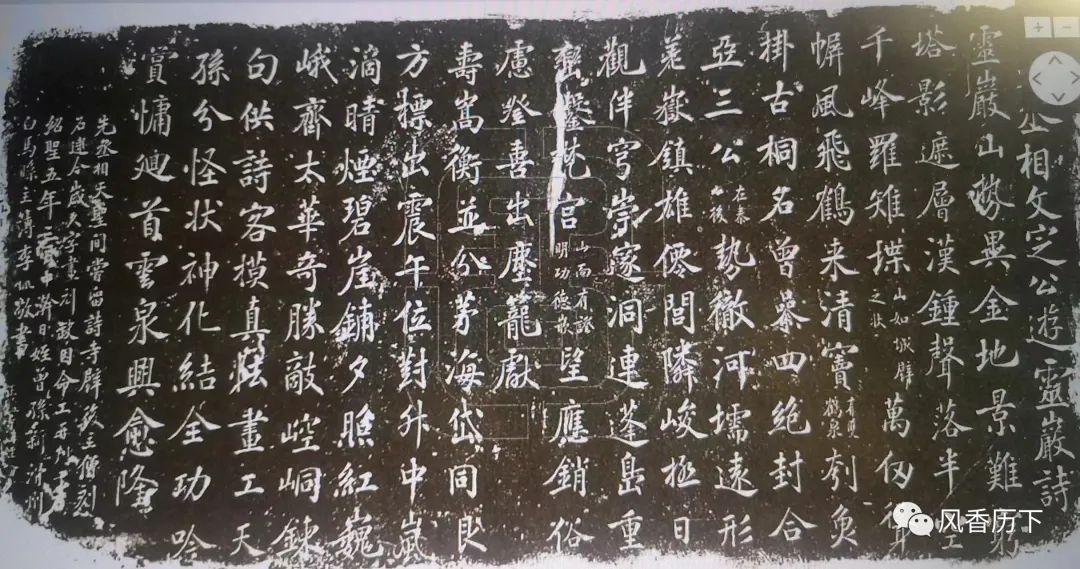 丞相文定公遊靈巖詩
靈巖山勢異金地景難窮
塔影遮層漢鍾聲落半空
千峰羅雉堞山如城壁之狀萬仞
幈風飛鶴来清竇鶴泉刳魚
掛古桐名曾叅四絶封合
亞三公在泰山後勢徹河壖遠形
差嶽鎮雄僊閭隣峻極日
觀伴穹崇邃洞連蓬島重
巒鑿梵宮山面有證明功德龕望應銷俗
慮登喜出塵籠獻
壽嵩衡並分茅海岱同臾
方標出震午位對升中嵐
滴晴煙碧崖鋪夕照紅巍
峨齊太華奇勝敵崆峒錬
句供詩客摸真畫工天
孫分怪状神化結全功吟
賞慵廻首雲泉興愈隆
先丞相天聖間嘗留詩寺壁茲主僧刻
石迨今歲久字畫刓敝因命工再刊
紹聖五年日姪曾孫新沧州
白馬縣主簿李侃敬書
风香历下